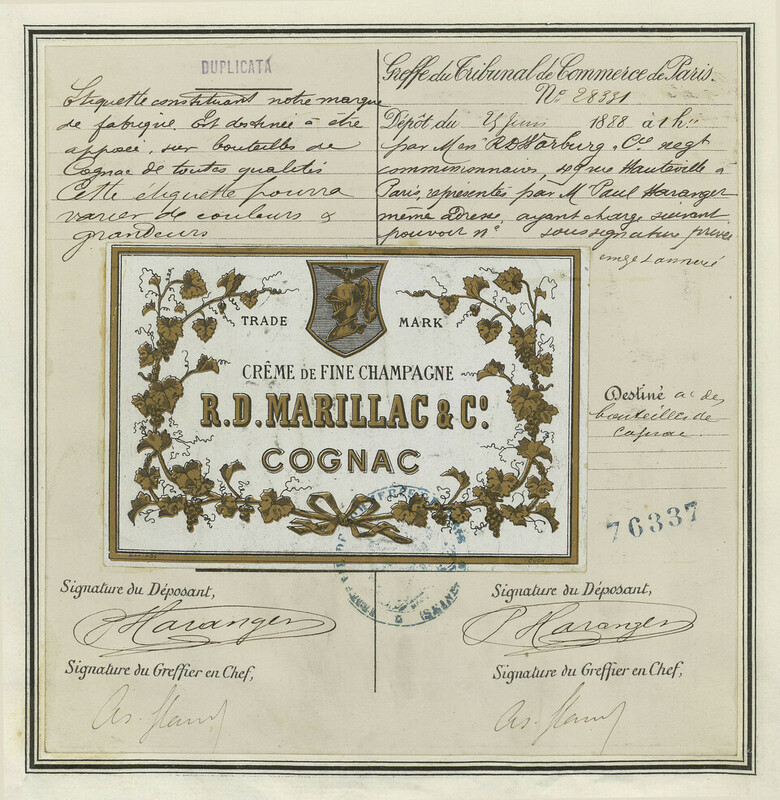 DUPLICATA
Etiquette constituant notre marque
de fabrique. Est destinée à être
apposée sur bouteilles de
Cognac de toutes qualités
Cette étiquette pourra
varier de couleurs &
grandeurs
Greffe du Tribunal de Commerce de Paris.
No 28331
Dépôt du 25 Juin 1888 à 1h
par Mrs R D Warburg & Cie negt
commissionnaires, rue Hauteville à
Paris, représentés par M Paul Haranger
même adresse, ayant charge suivant
pouvoir no sous signature privée
TRADE MARK
CRÊME DE FINE CHAMPAGNE
R.D. MARILLAC & Co.
COGNAC
Destiné à des
bouteilles de
cognac
76337
Signature du Déposant,
P Haranger
Signature du Greffier en Chef,
Signature du Déposant,
P Haranger
Signature du Greffier en Chef,